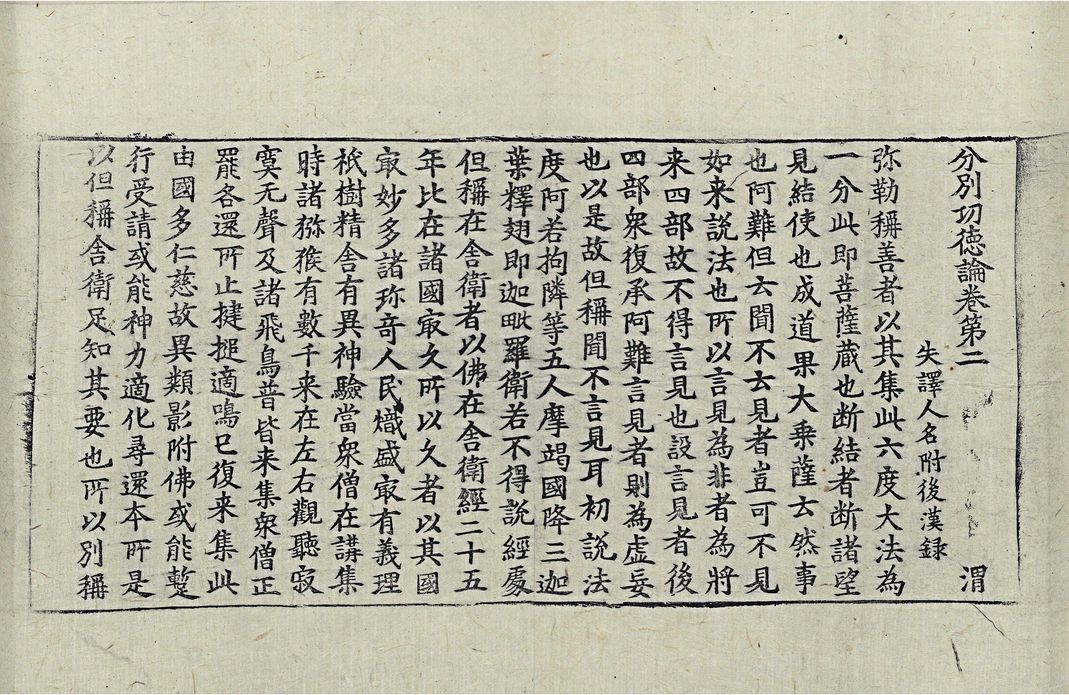 分別功德論卷第二 渭
失譯人名附後漢錄
弥勒稱善者以其集此六度大法為
一分此即菩薩蔵也断結者断諸望
見結使也成道果大乗薩云然事
也阿難但云聞不云見者豈可不見
如来說法也所以言見為非者為將
来四部故不得言見也設言見者後
四部衆復承阿難言見者則為虛妄
也以是故但稱聞不言見耳初說法
度阿若拘隣等五人摩竭國降三迦
葉釋翅即迦毗羅衛若不得說經處
但稱在舍衛者以佛在舍衛經二十五
年比在諸國㝡久所以久者以其國
㝡妙多諸珎奇人民熾盛㝡有義理
祇樹精舍有異神驗當衆僧在講集
時諸猕猴有數千来在左右觀聽寂
寞无聲及諸飛鳥普皆来集衆僧正
罷各還所止揵搥適鳴已復来集此
由國多仁慈故異類影附佛或能蹔
行受請或能神力適化尋還本所是
以但稱舍衛足知其要也所以別稱